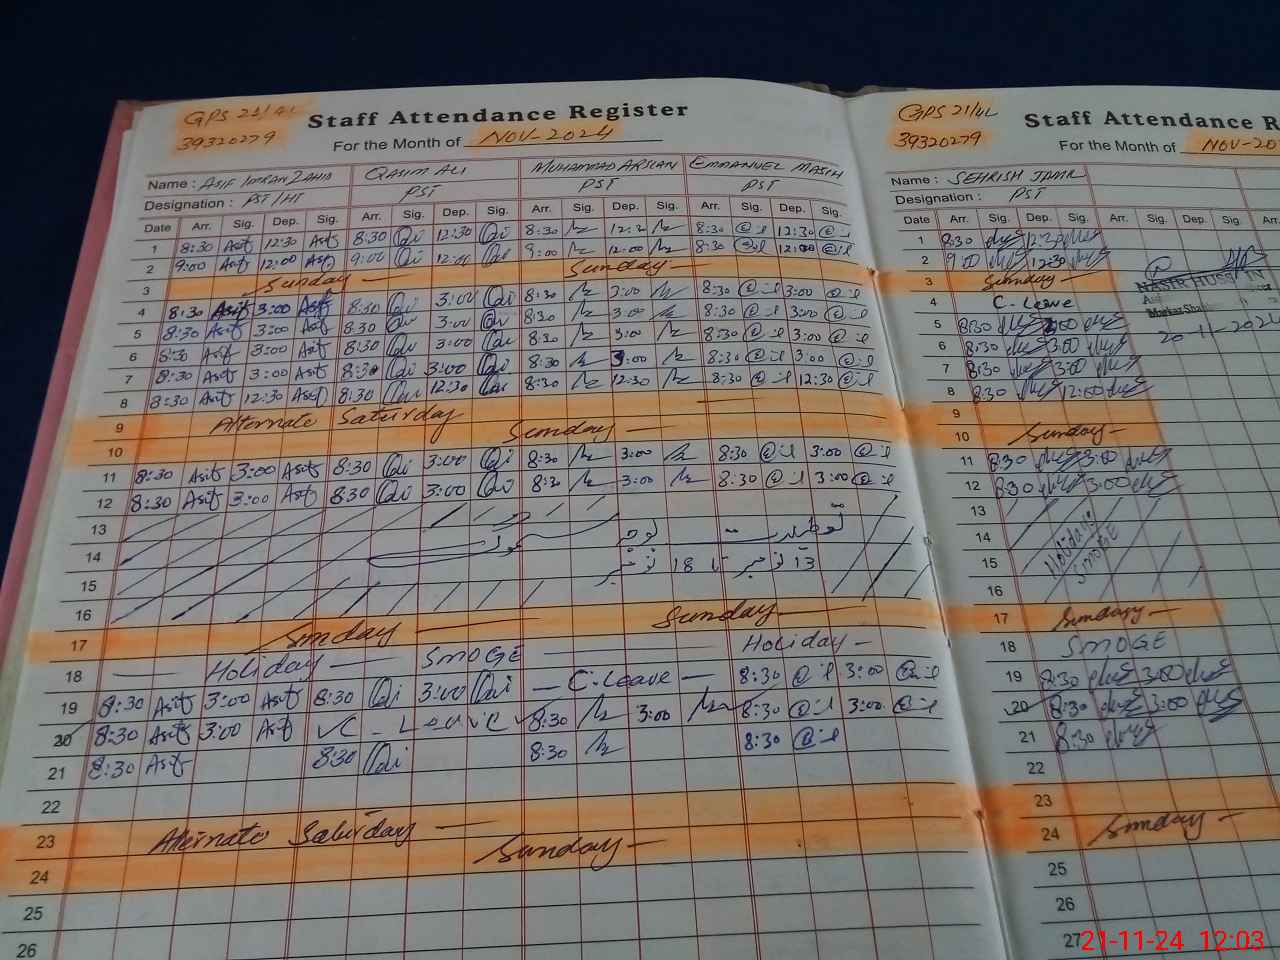 GPS 21/4L
39320279
Staff Attendance Register
For the Month of NOV-2024
Name : ASIF IMRAN ZAHID QASIM ALI MUHAMMAD ARSLAN EMMANUEL MASIH
Designation : PST/HT PST PST PST
Date Arr. Sig. Dep. Sig. Arr. Sig. Dep. Sig. Arr. Sig. Dep. Sig. Arr. Sig. Dep. Sig.
1 8:30 Asif 12:30 Asif 8:30 12:30 8:30 8:30 12:30
2 9:00 Asif 12:00 Asif 9:00 12:00 9:00 12:00 8:30 12:00
3 Sunday Sunday
4 8:30 Asif 3:00 Asif 8:30 3:00 8:30 3:00 8:30 3:00
5 8:30 Asif 3:00 Asif 8:30 3:00 8:30 3:00 8:30 3:00
6 8:30 Asif 3:00 Asif 8:30 3:00 8:30 3:00 8:30 3:00
7 8:30 Asif 3:00 Asif 8:30 3:00 8:30 3:00 8:30 3:00
8 8:30 Asif 12:30 Asif 8:30 12:30 8:30 12:30 8:30 12:30
9 Alternate Saturday
10 Sunday
11 8:30 Asif 3:00 Asif 8:30 3:00 8:30 3:00 8:30 3:00
12 8:30 Asif 3:00 Asif 8:30 3:00 8:30 3:00 8:30 3:00
13
14 13 نومبر تا 18 نومبر
15
16
17 Sunday Sunday
18 Holiday SMOGE Holiday
19 8:30 Asif 3:00 Asif 8:30 3:00 C.Leave 8:30 3:00
20 8:30 Asif 3:00 Asif C-Leave 8:30 3:00 8:30 3:00
21 8:30 Asif 8:30 8:30 8:30
22
23 Alternate Saturday
24 Sunday
25
26
GPS 21/4L
39320279
Staff Attendance R
For the Month of NOV-20
Name : SEHRISH
Designation : PST
Date Arr. Sig. Dep. Sig. Arr. Sig. Dep. Sig.
1 8:30 12:30
2 9:00 12:30
3 Sunday
4 C-Leave
NASIR HUSSAIN
5 8:30 3:00
20-11-2024
6 8:30 3:00
7 8:30 3:00
8 8:30 12:00
9
10 Sunday
11 8:30 3:00
12 8:30 3:00
13
14 Holiday
15 SMOGE
16
17 Sunday
18 SMOGE
19 8:30 3:00
20 8:30 3:00
21 8:30
22
23
24 Sunday
25
26
27
21-11-24 12:03